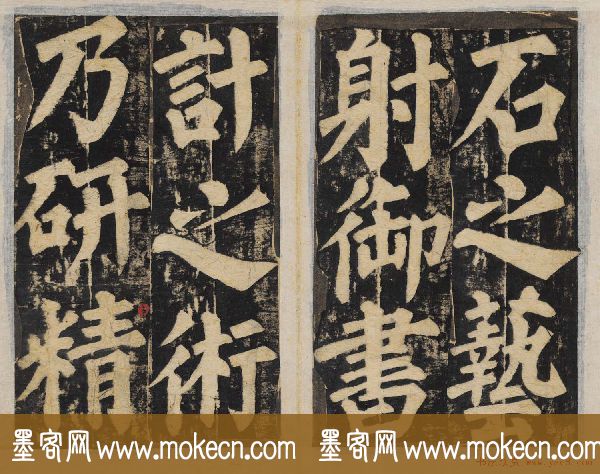 石之藝
射御書
計之術
乃研精
墨客网 www.mokecn.com 墨客网 www.mokecn.com